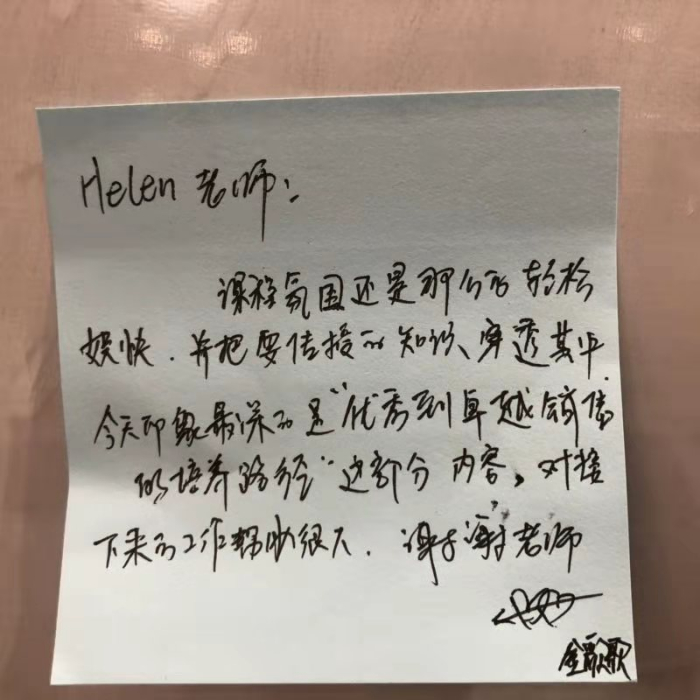 Helen 老师:
课程氛围还是那么的轻松
娱快.并把要传授的知识、穿透其中.
今天印象最深的是"优秀到卓越销售
的培养路径"这部分内容。对接
下来的工作帮助很大.谢谢老师
金歌歌